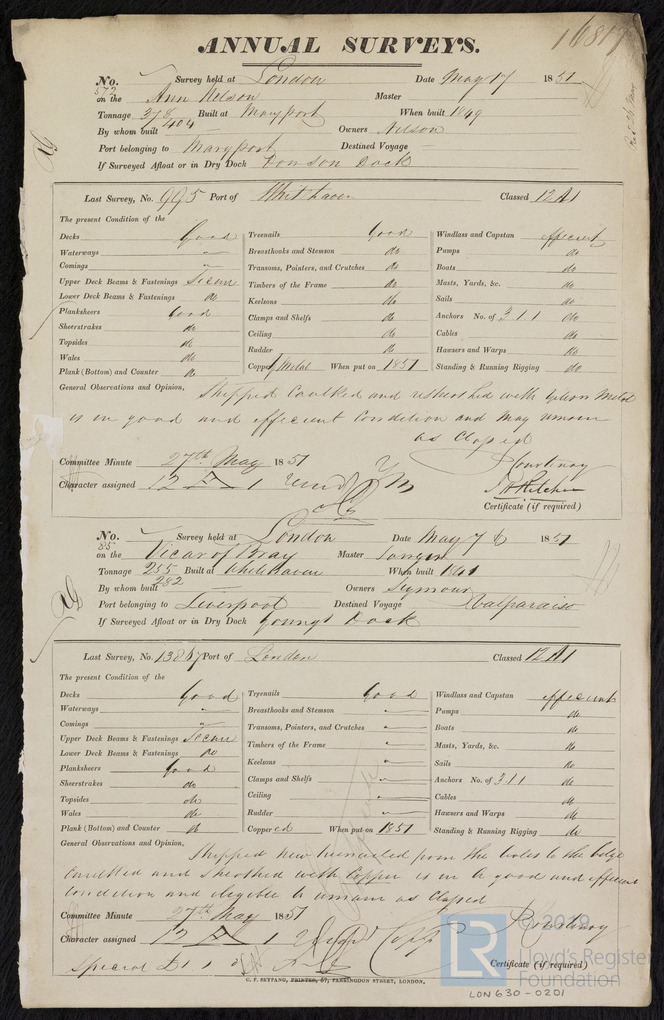 ANNUAL SURVEYS.
16817
No. 572 Survey held at London Date May 17 1851
on the Ann Nelson Master
Tonnage 378 404 Built at Maryport When built 1849
By whom built Owners Nelson
Port belonging to Maryport Destined Voyage
If Surveyed Afloat or in Dry Dock Dowson Dock
Last Survey, No. 995 Port of Whithaven Classed 12 A1
The present Condition of the
Decks Good Treenails Good Windlass and Capstan efficient
Waterways " Breasthooks and Stemson do Pumps do
Comings " Transoms, Pointers, and Crutches do Boats do
Upper Deck Beams & Fastenings Secure Timbers of the Frame do Masts, Yards, &c. do
Lower Deck Beams & Fastenings do Keelsons do Sails do
Planksheers Good Clamps and Shelfs do Anchors No. of 3 1 1 do
Sheerstrakes do Ceiling do Cables do
Topsides do Rudder do Hawsers and Warps do
Wales do Copper Y Metal When put on 1851 Standing & Running Rigging do
Plank (Bottom) and Counter do
General Observations and Opinion, Stripped Caulked and resheathed with Yellow Metal
is in good and efficient Condition and May remain
as Classed
Committee Minute 27th May 1851 J Courtenay
Character assigned 12 A 1
Certificate (if required)
No. 85 Survey held at London Date May 7 1851
on the Vicar of Bray Master
Tonnage 255 282 Built at Whitehaven When built 1841
By whom built Owners Seymour
Port belonging to Liverpool Destined Voyage Valparaiso
If Surveyed Afloat or in Dry Dock Youngs Dock
Last Survey, No. Port of London Classed 12 A1
The present Condition of the
Decks Good Treenails Good Windlass and Capstan efficient
Waterways " Breasthooks and Stemson " Pumps do
Comings " Transoms, Pointers, and Crutches " Boats do
Upper Deck Beams & Fastenings Secure Timbers of the Frame " Masts, Yards, &c. do
Lower Deck Beams & Fastenings do Keelsons " Sails do
Planksheers Good Clamps and Shelfs " Anchors No. of 3 1 1 do
Sheerstrakes do Ceiling " Cables do
Topsides do Rudder " Hawsers and Warps do
Wales do Coppered When put on 1851 Standing & Running Rigging do
Plank (Bottom) and Counter do
General Observations and Opinion, Stripped New treenailed from the wales to the bilge
Caulked and sheathed with Copper is in a good and efficient
condition and eligible to remain as Classed
Committee Minute 27th May 1851 J Courtenay
Character assigned 12 A 1
Special £1 1 Certificate (if required)
C. F. SEYFANG, PRINTER, 57, FARRINGDON STREET, LONDON.
© 2019
LR Lloyd's Register
Foundation
LON 630-0201